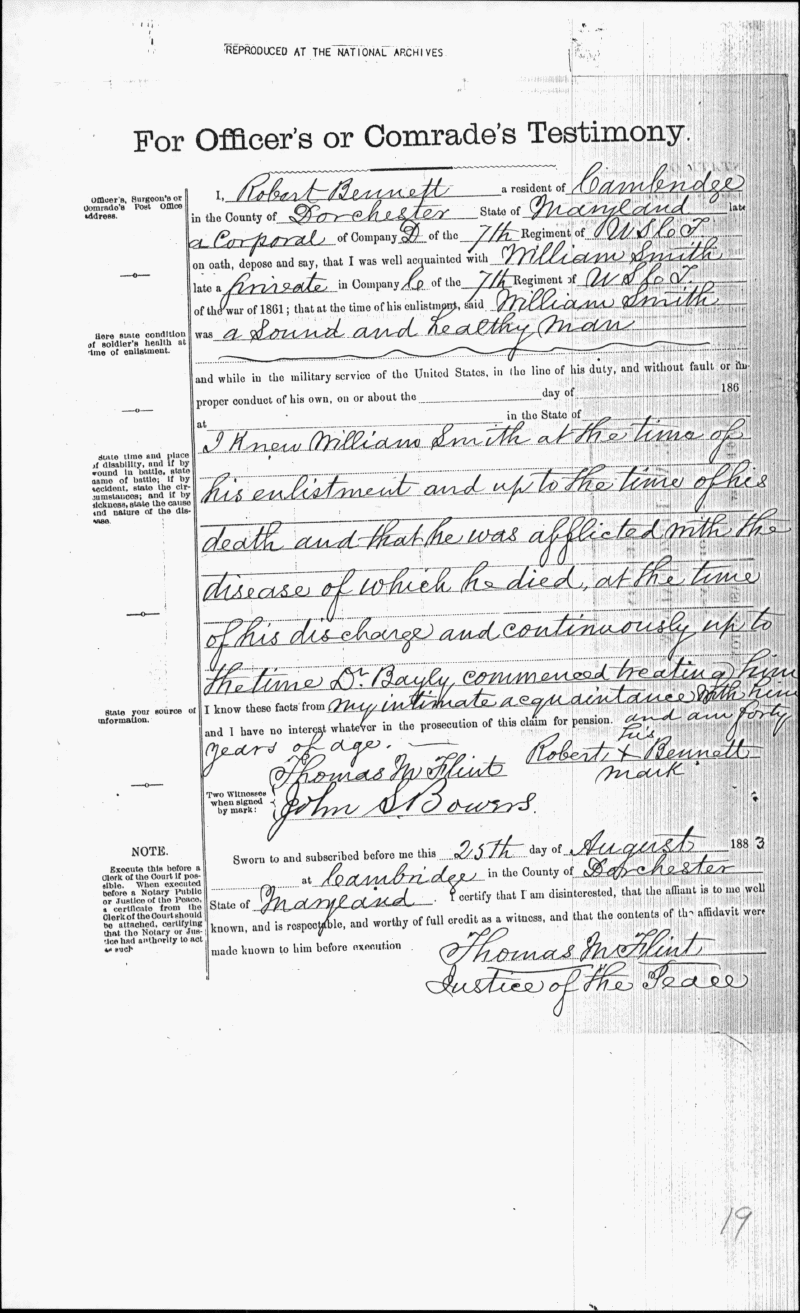 REPRODUCED AT THE NATIONAL ARCHIVES
For Officer's or Comrade's Testimony.
Officer's, Surgeon's or
Comrade's Post Office
address.
I, Robert Bennett a resident of Cambridge
in the County of Dorchester State of Maryland late
a Corporal of Company D of the 7th Regiment of U S C T.
on oath, depose and say, that I was well acquainted with William Smith
late a private in Company C of the 7th Regiment of U S C T.
of the war of 1861; that at the time of his enlistment, said William Smith
was a Sound and healthy man
Here state condition
of soldier's health at
time of enlistment.
and while in the military service of the United States, in the line of his duty, and without fault or im-
proper conduct of his own, on or about the day of 186
at in the State of
State time and place
of disability, and if by
wound in battle, state
name of battle; if by
accident, state the cir-
cumstances; and if by
sickness, state the cause
and nature of the dis-
ease.
I Knew William Smith at the time of
his enlistment and up to the time of his
death and that he was afflicted with the
disease of which he died, at the time
of his discharge and continuously up to
the time Dr. Bayly commenced treating him
State your source of
information.
I know these facts from my intimate acquaintance with him
and I have no interest whatever in the prosecution of this claim for pension. and am forty
years of age.
his
Robert X Bennett
mark
Two Witnesses
when signed
by mark:
Thomas M Flint
John S. Bowers.
NOTE.
Execute this before a
Clerk of the Court if pos-
sible. When executed
before a Notary Public
or Justice of the Peace,
a certificate from the
Clerk of the Court should
be attached, certifying
that the Notary or Jus-
tice had authority to act
as such
Sworn to and subscribed before me this 25th day of August 1883
at Cambridge in the County of Dorchester
State of Maryland. I certify that I am disinterested, that the affiant is to me well
known, and is respectable, and worthy of full credit as a witness, and that the contents of the affidavit were
made known to him before execution.
Thomas M Flint
Justice of the Peace
19